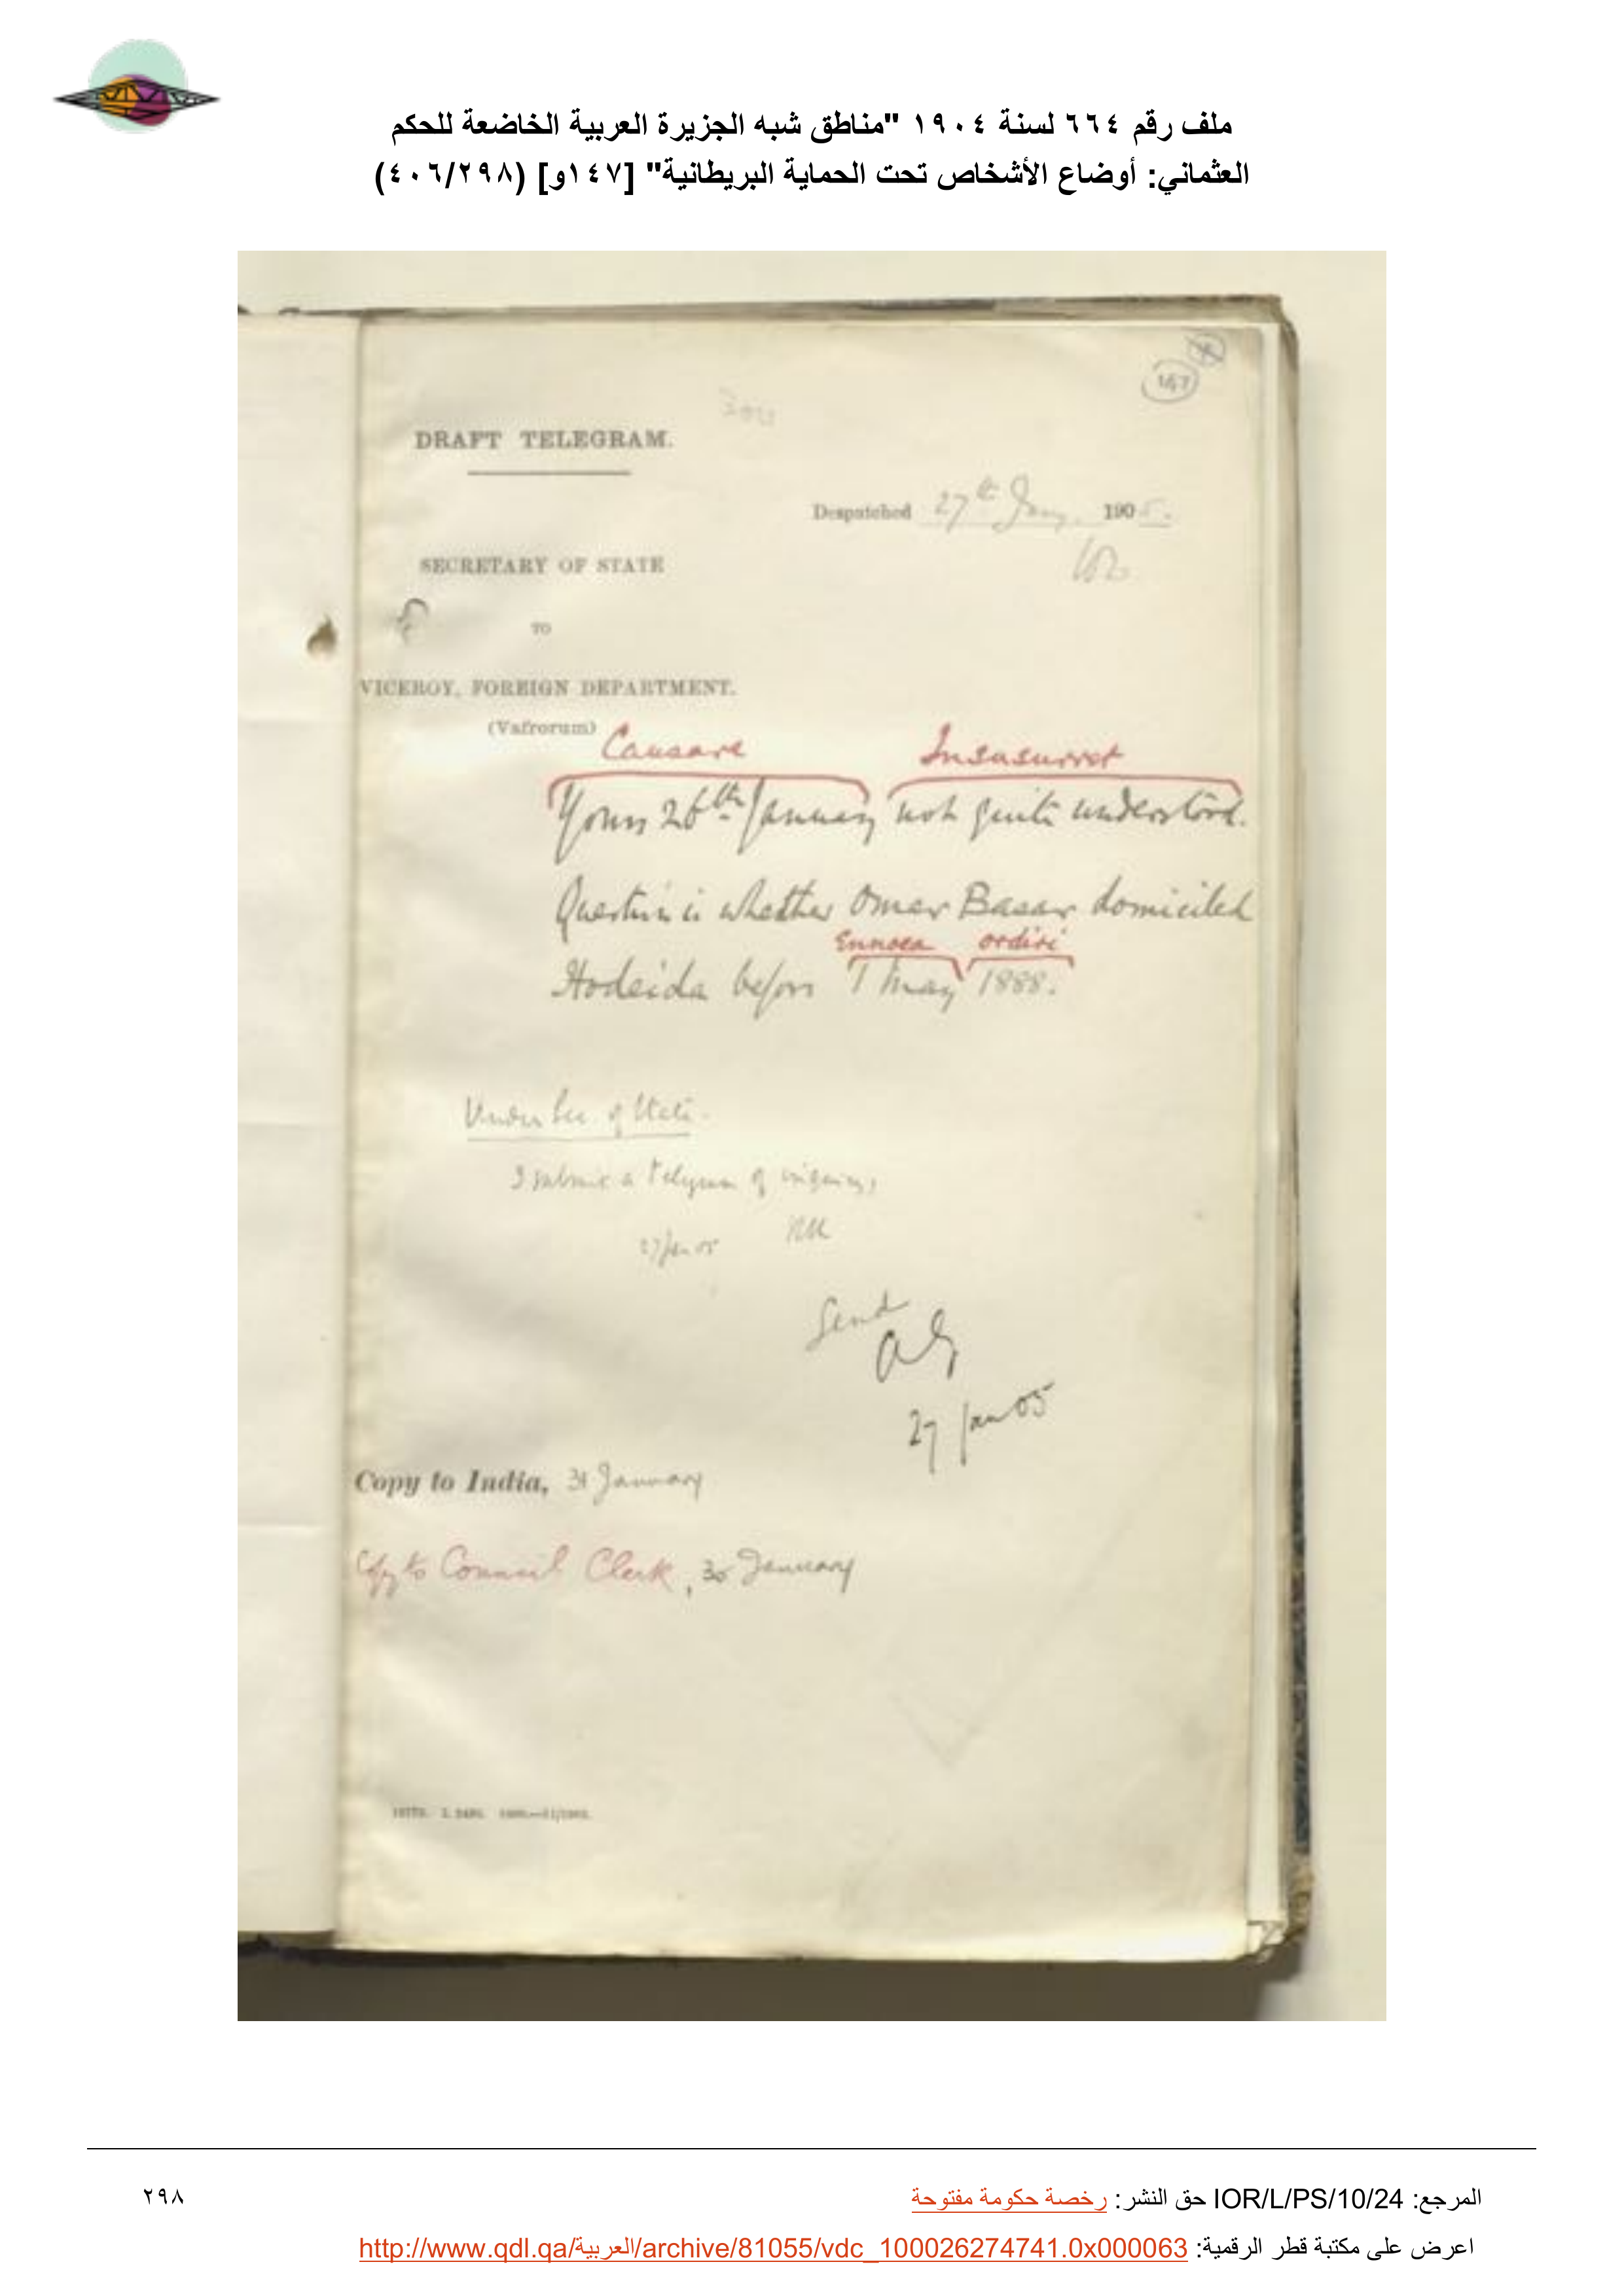 ملف رقم ٦٦٤ لسنة ١٩٠٤ "مناطق شبه الجزيرة العربية الخاضعة للحكم
العثماني: أوضاع الأشخاص تحت الحماية البريطانية" [١٤٧و] (٤٠٦/٢٩٨)
147
DRAFT TELEGRAM.
Despatched 27th Jany. 1905.
SECRETARY OF STATE
TO
VICEROY, FOREIGN DEPARTMENT.
(Vafrorum)
Causare Insusurret
Yours 26th January not quite understood.
Question is whether Omar Basar domiciled
Ennoea ordiri
Hodeida before 1 May 1888.
Under Sec. of State.
I submit a telegram of inquiry
27 Jan 05
Send
27 Jan 05
Copy to India, 31 January
Copy to Council Clerk, 30 January
المرجع: IOR/L/PS/10/24 حق النشر: رخصة حكومة مفتوحة
٢٩٨
اعرض على مكتبة قطر الرقمية: http://www.qdl.qa/العربية/archive/81055/vdc_100026274741.0x000063